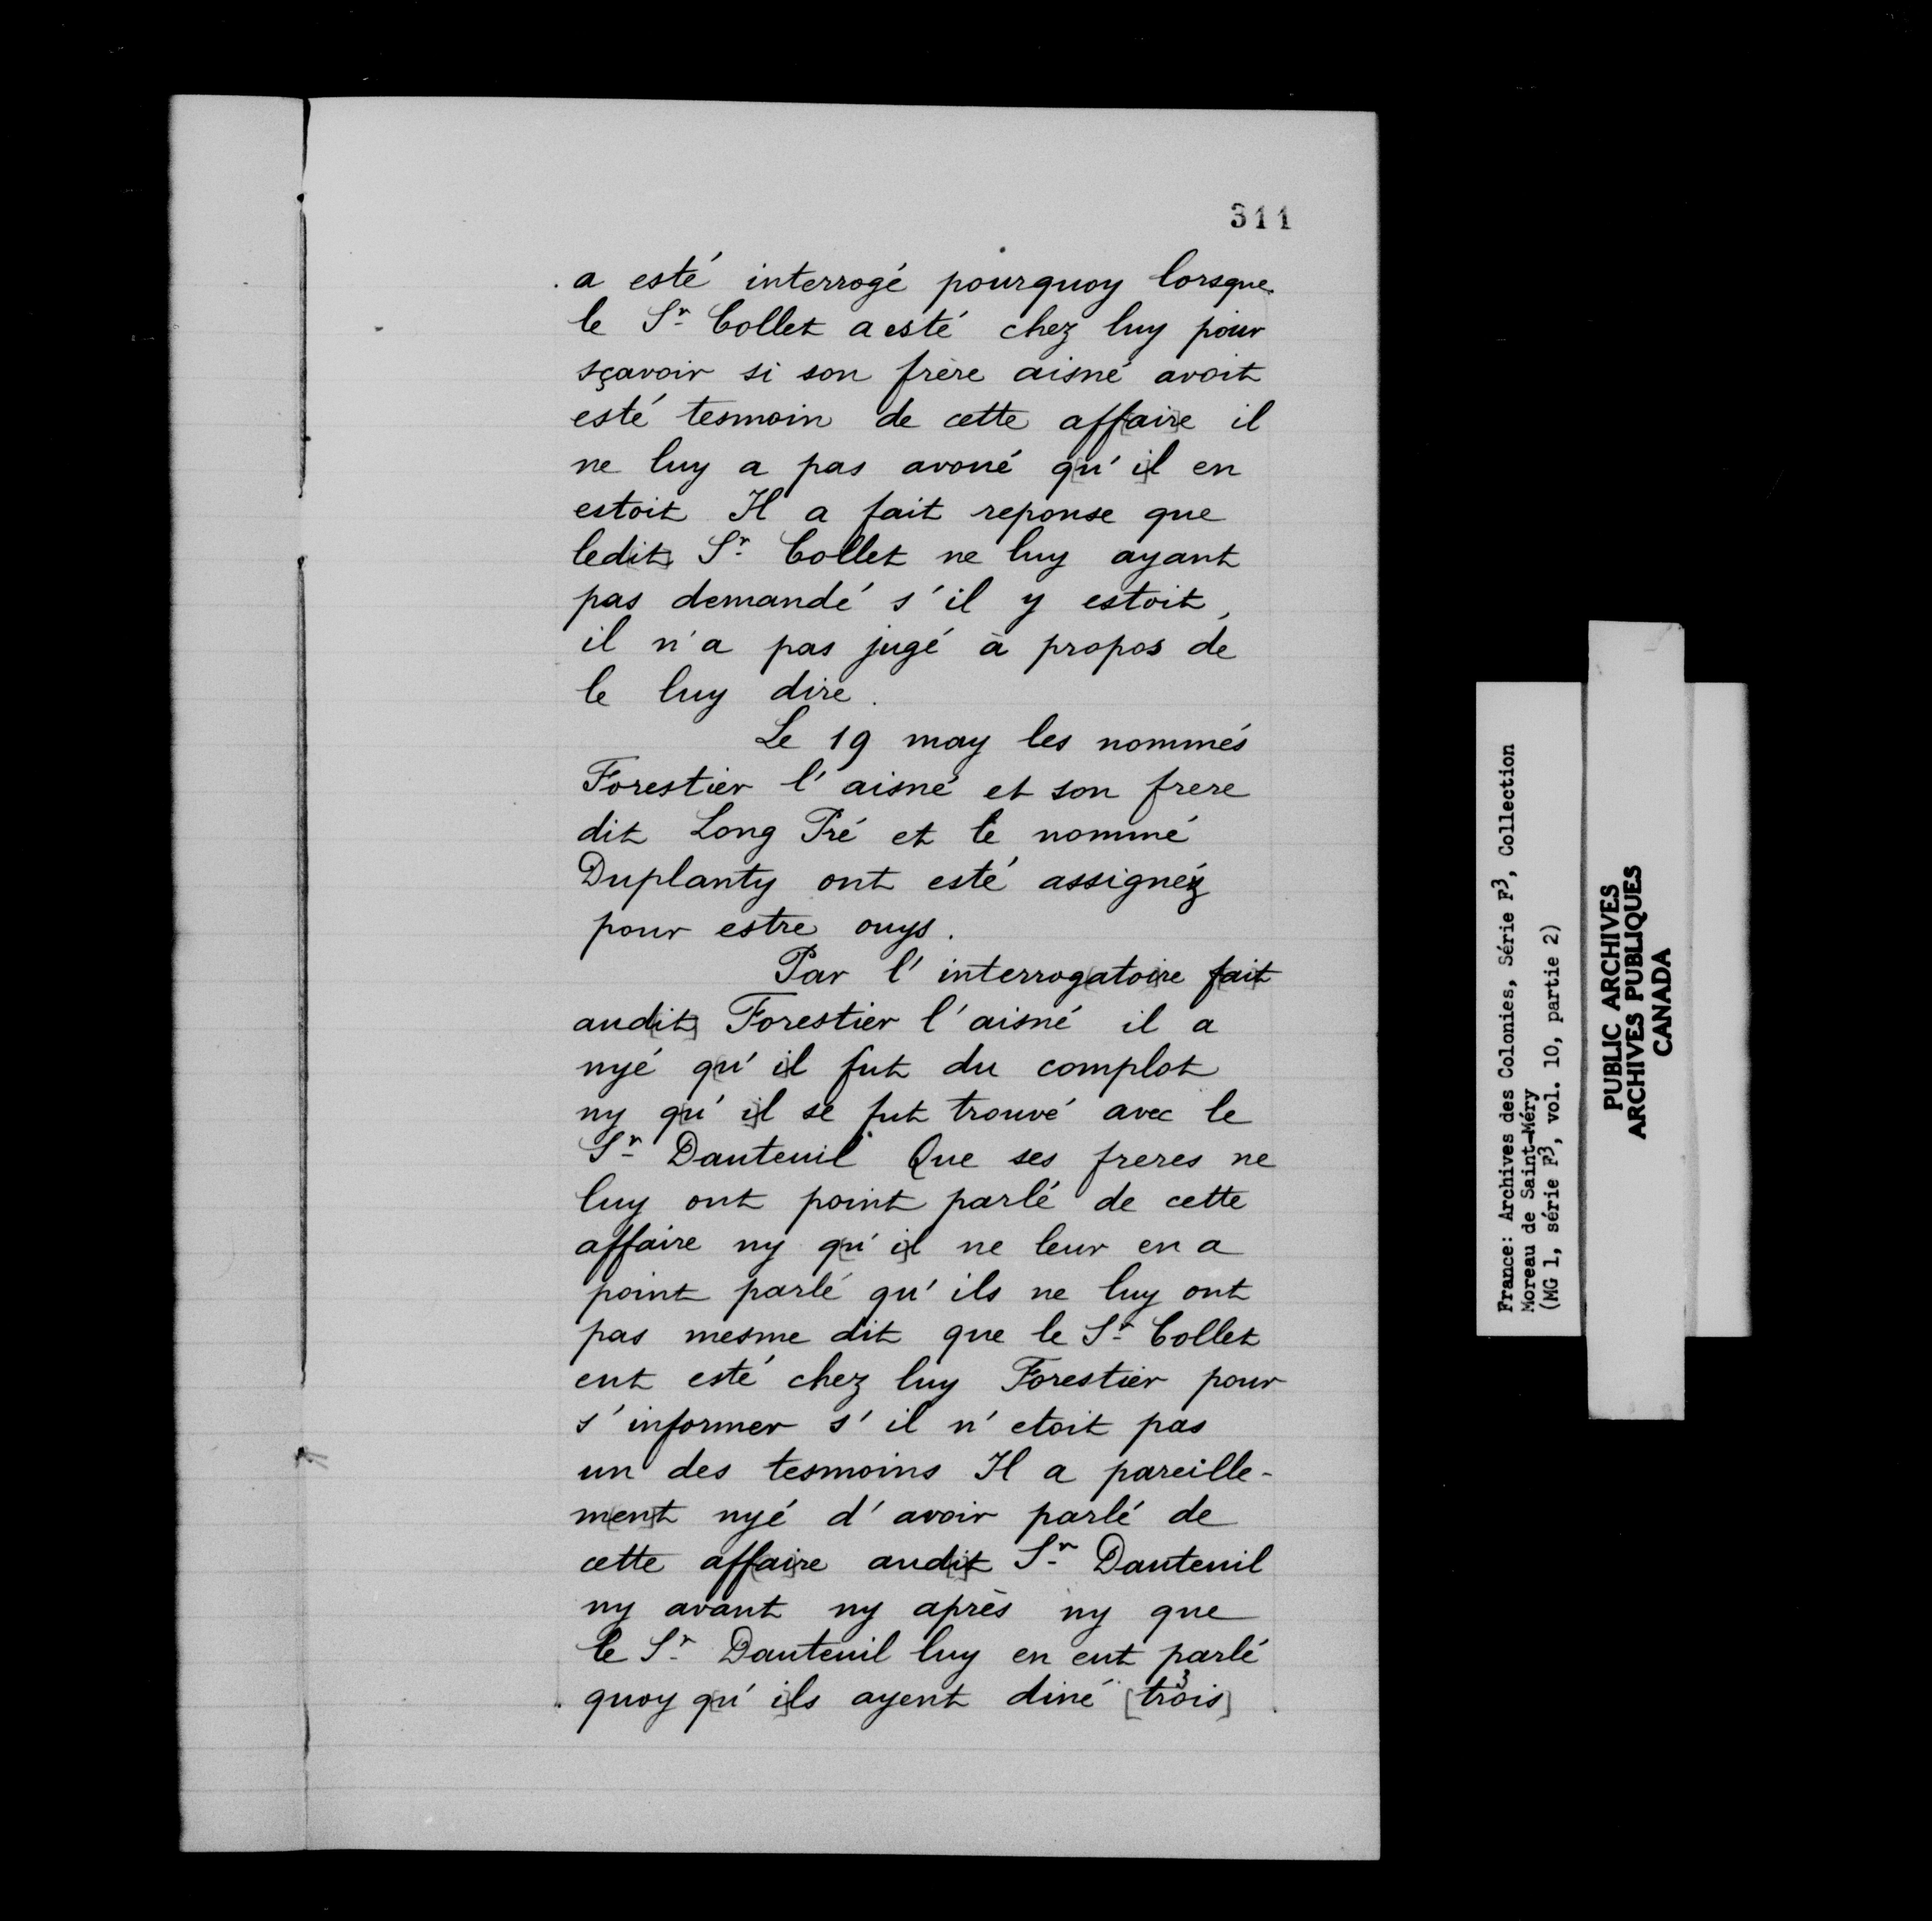 311
a esté interrogé pourquoy lorsque
le Sr Collet a esté chez luy pour
sçavoir si son frère aisné avoit
esté tesmoin de cette aff[ai]re il
ne luy a pas avoué q[u'i]l en
estoit Il a fait reponse que
led[it] Sr Collet ne luy ayant
pas demandé s'il y estoit,
il n'a pas jugé à propos de
le luy dire.
Le 19 may les nommés
Forestier l'aisné et son frere
dit Long Pré et le nommé
Duplanty ont esté assignéz
pour estre ouys.
Par l'interrog[atoi]re f[ai]t
aud[it] Forestier l'aisné il a
nyé q[u'i]l fut du complot
ny q[u'i]l se fut trouvé avec le
Sr Dauteuil Que ses freres ne
luy ont point parlé de cette
affaire ny q[u'i]l ne leur en a
point parlé qu'ils ne luy ont
pas mesme dit que le Sr Collet
eut esté chez luy Forestier pour
s'informer s'il n'etoit pas
un des tesmoins Il a pareille-
m[en]t nyé d'avoir parlé de
cette aff[ai]re aud[i]t Sr Dauteuil
ny avant ny après ny que
le Sr Dauteuil luy en eut parlé
quoy q[u'i]ls ayent diné [trois] 3
France: Archives des Colonies, Série F3, Collection
Moreau de Saint-Méry
(MG 1, série F3, vol. 10, partie 2)
PUBLIC ARCHIVES
ARCHIVES PUBLIQUES
CANADA